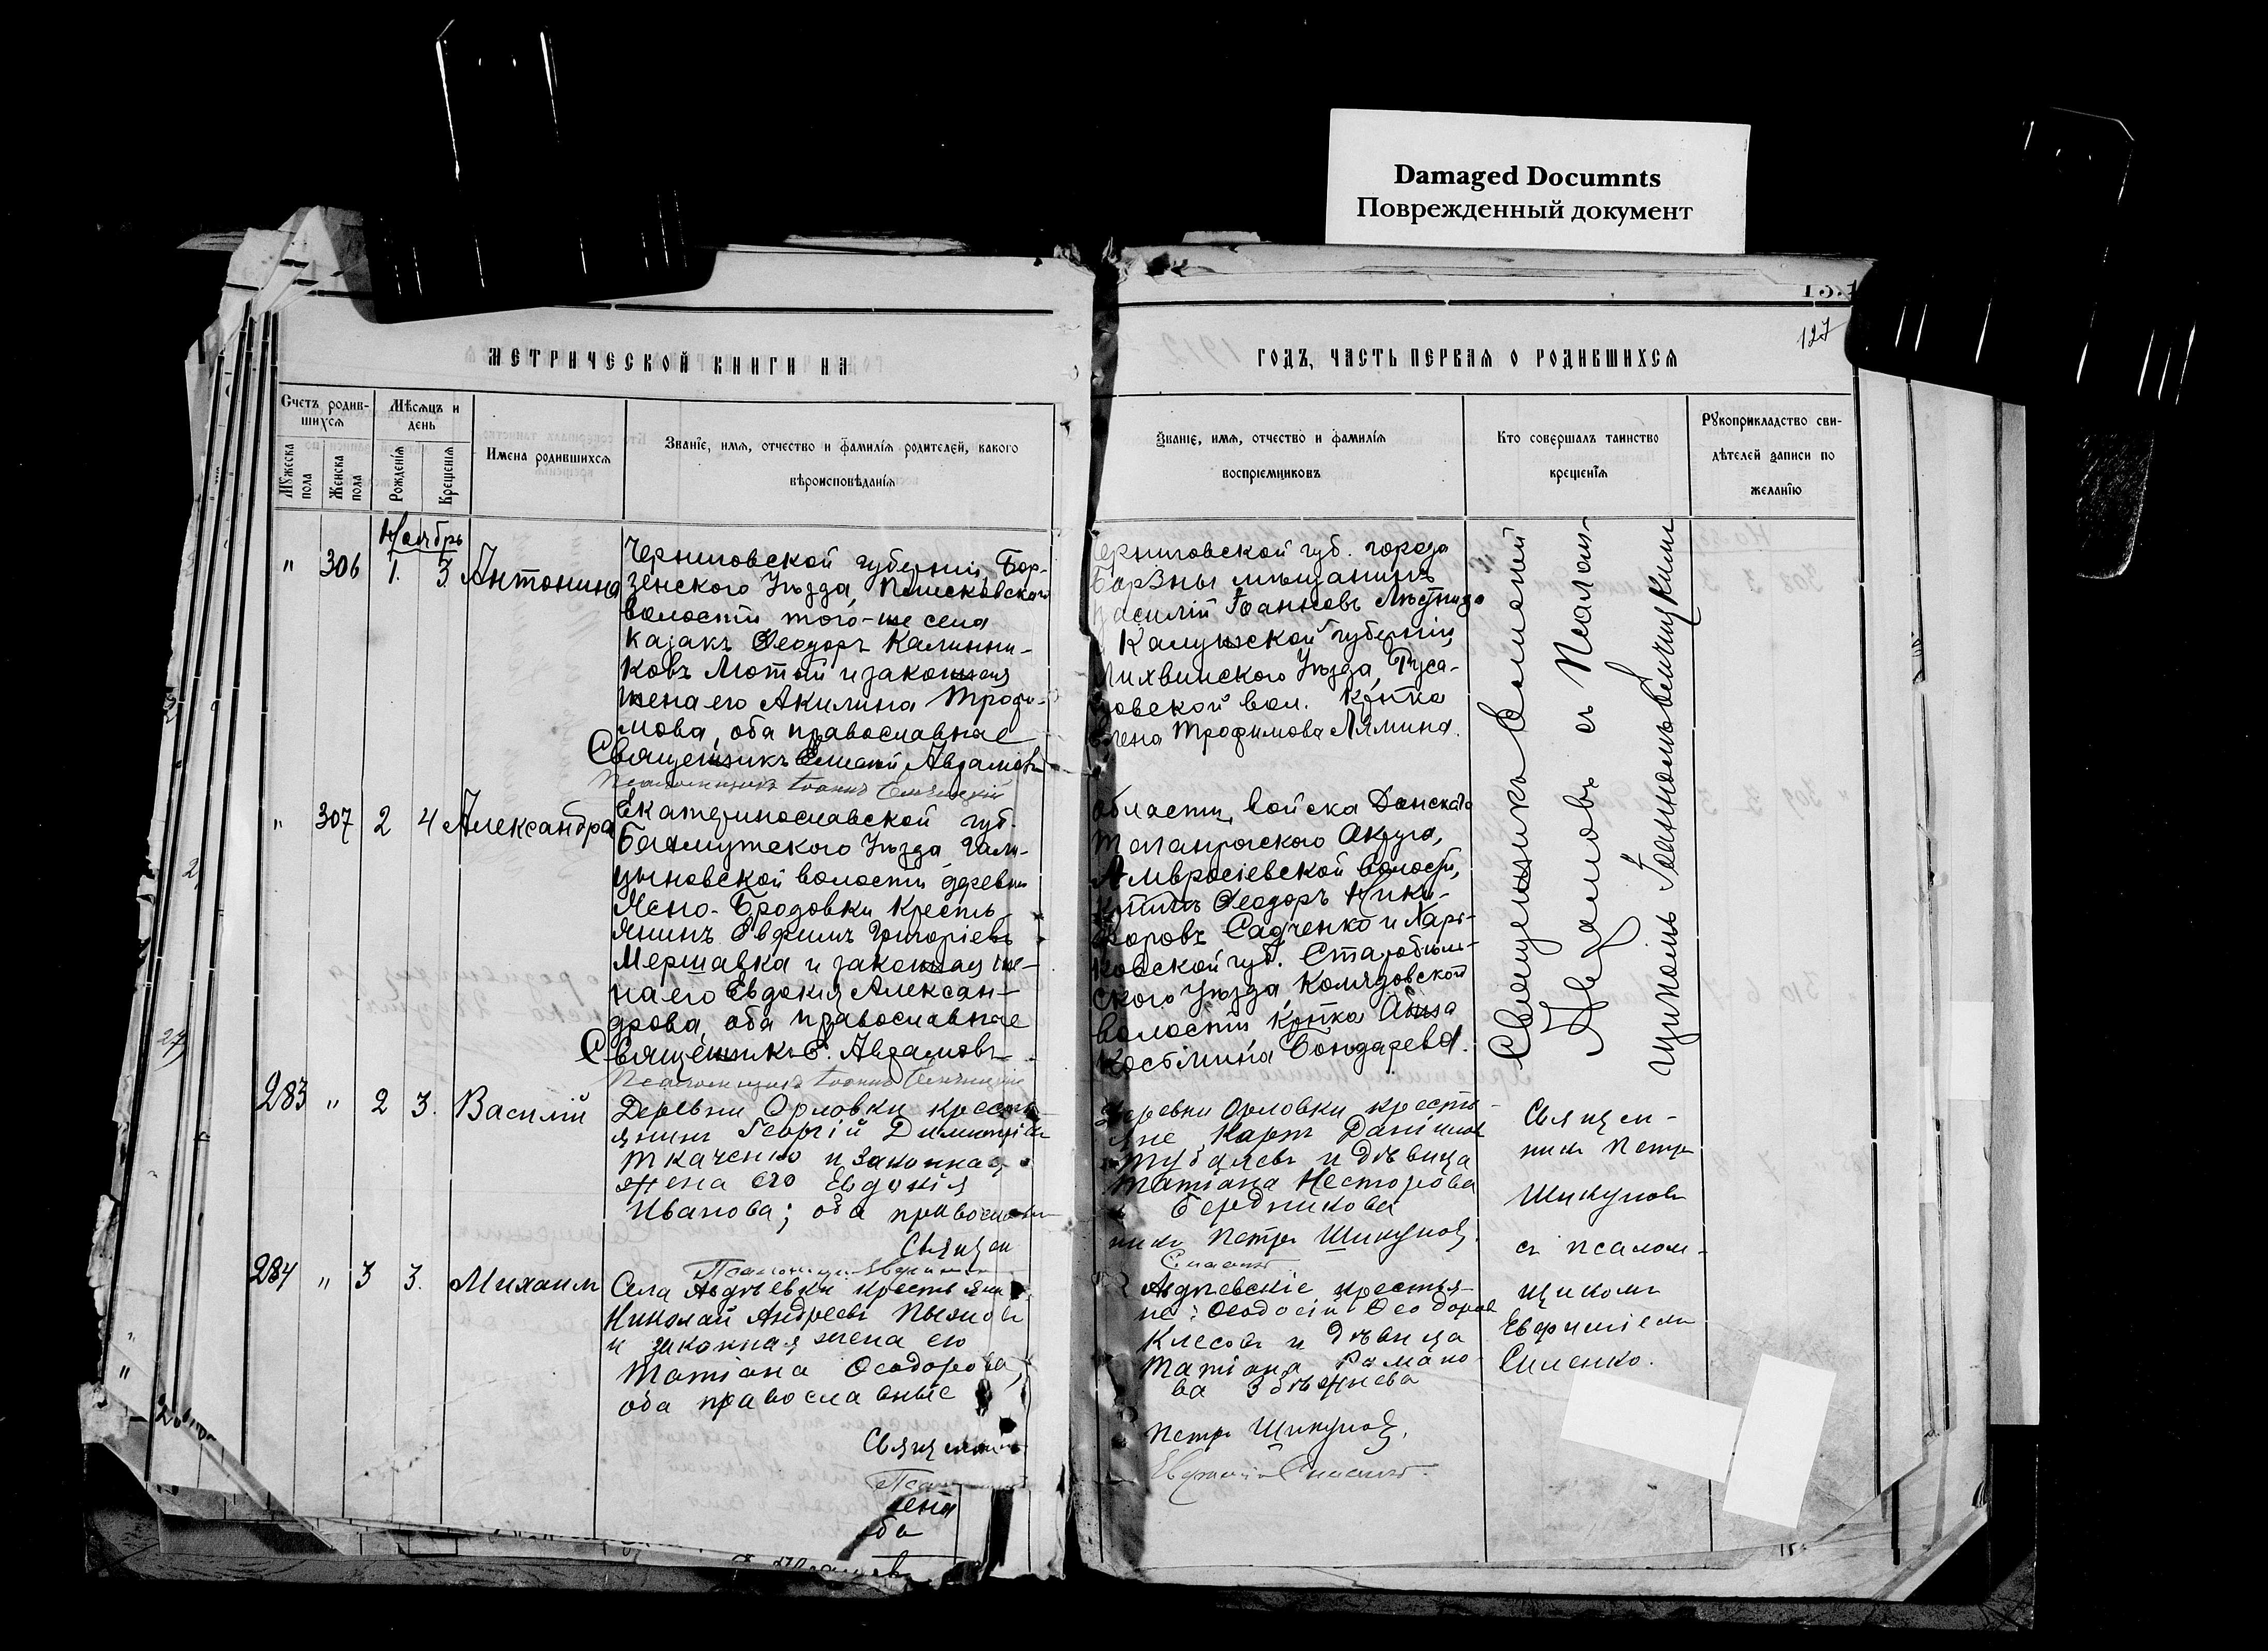 Damaged Documnts
Поврежденный документ
127
МЕТРИЧЕСКОЙ КНИГИ НА
ГОДЪ, ЧАСТЬ ПЕРВАЯ О РОДИВШИХСЯ
Счетъ родив-
шихся
Мѣсяцъ и
день
Мужеска
пола
Женска
пола
Рожденія
Крещенія
Имена родившихся
Званіе, имя, отчество и фамилія родителей, какого
вѣроисповѣданія
Званіе, имя, отчество и фамилія
воспріемниковъ
Кто совершалъ таинство
крещенія
Рукоприкладство сви-
дѣтелей записи по
желанію
Ноябрь
" 306 1. 3 Антонина
Черниговской губерніи, Бор-
зенского Уѣзда,
волости того-же села
казакъ Феодоръ Калинни-
ковъ Лютый и законная
жена его Акилина Трофи-
мова, оба православные
Священникъ Авраамовъ
Псаломщикъ Іоаннъ
Черниговской губ. города
Борзны мѣщанинъ
Василій Іоанновъ
Калужской губерніи,
Лихвинского Уѣзда, Руса-
новской вол. Кр-тка
Елена Трофимова Лямина.
Священникъ
Авраамовъ съ Псалом-
щикомъ Іоанномъ
" 307 2 4 Александра
Екатеринославской губ.
Бахмутского Уѣзда, Гали-
цыновской волости деревни
Ясно-Бродовки Кресть-
янинъ Евфимъ Григоріевъ
Мершавка и законная же-
на его Евдокія Алексан-
дрова, оба православные
Священникъ Е. Авраамовъ
Псаломщикъ Іоаннъ
Области Войска Донскаго
Таганрогского Округа,
Амвросіевской волости,
Феодоръ Ники-
форовъ Садченко и Харь-
ковской губ. Старобѣль-
ского Уѣзда, Колядовской
волости Кр-тка Анна
Костмина Бондарева.
283 " 2 3. Василій
Деревни Орловки кресть-
янинъ Георгій Димитріевъ
Ткаченко и законная
жена его Евдокія
Иванова; оба православные
Священ
Деревни Орловки кресть-
яне Карпъ Даніиловъ
и дѣвица
Татіана Несторова
Бердникова
никъ Петръ Шикуновъ
Священ-
никъ Петръ
Шикуновъ
съ псалом-
щикомъ
Евфиміемъ
Силенко.
284 " 3 3. Михаилъ
Села Авдѣевки крестьянинъ
Николай Андреевъ Пьяновъ
и законная жена его
Татіана Феодорова,
оба православные
Священникъ
Авдѣевскіе крестья-
не: Феодосій Феодоровъ
Клесовъ и дѣвица
Татіана Романо-
ва Збѣжнева
Петръ Шикуновъ.
жена
оба